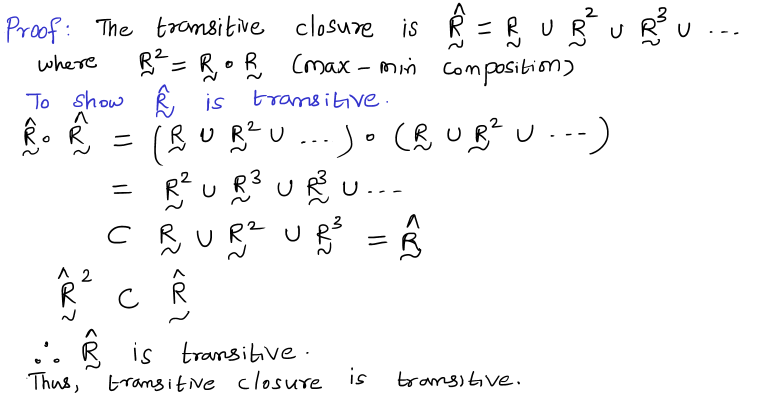 Proof: The transitive closure is R̰̂ = R̰ ∪ R̰² ∪ R̰³ ∪ ...
where R̰² = R̰ ∘ R̰ (max-min composition)
To show R̰̂ is transitive.
R̰̂ ∘ R̰̂ = (R̰ ∪ R̰² ∪ ...) ∘ (R̰ ∪ R̰² ∪ ...)
= R̰² ∪ R̰³ ∪ R̰³ ∪ ...
⊂ R̰ ∪ R̰² ∪ R̰³ = R̰̂
R̰̂² ⊂ R̰̂
∴ R̰̂ is transitive.
Thus, transitive closure is transitive.